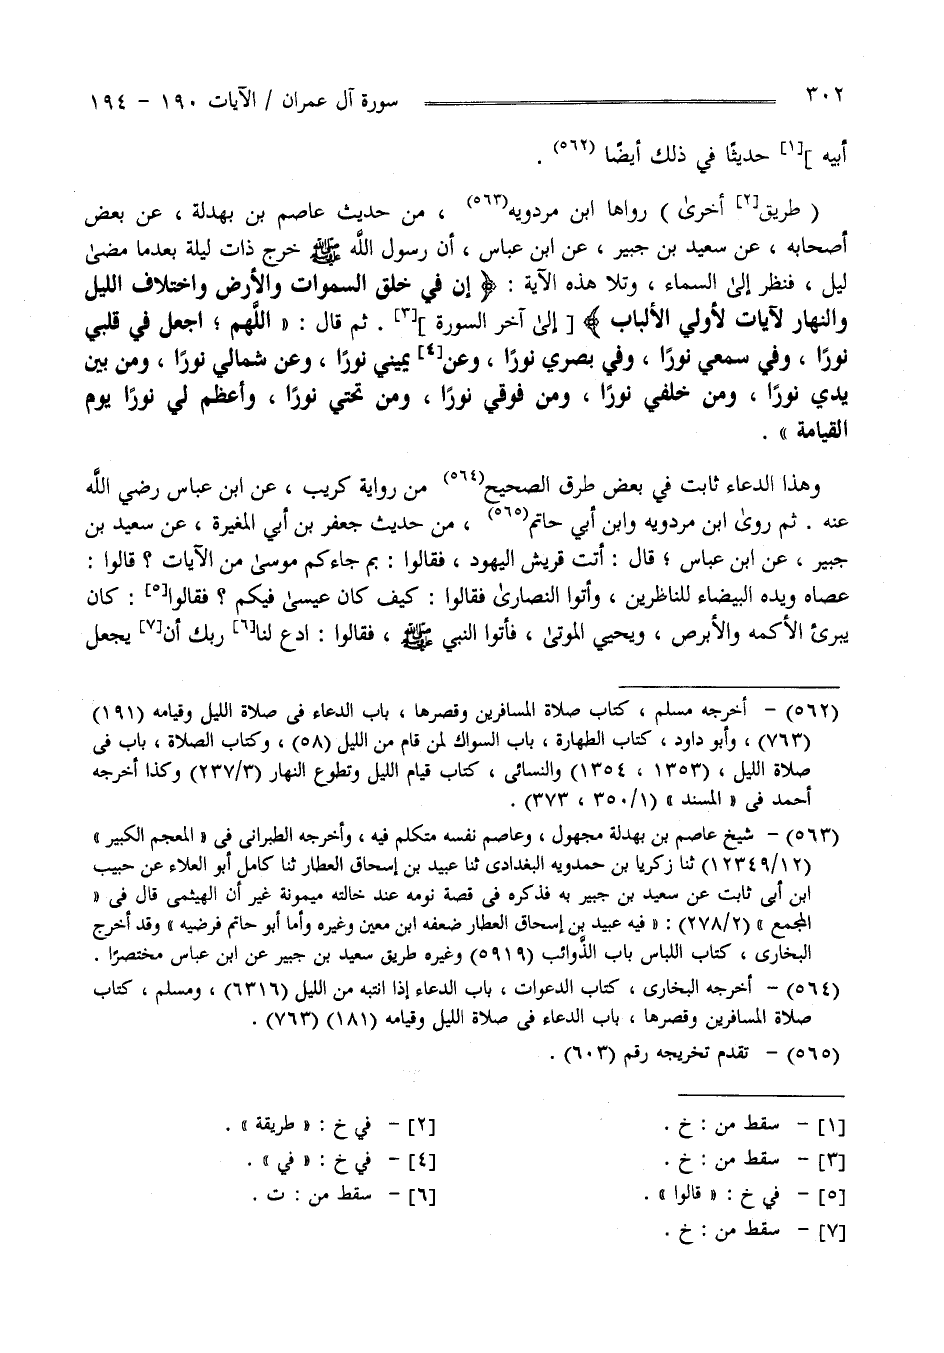 ٣٠٢ سورة آل عمران / الآيات ١٩٠ - ١٩٤
أبيه ][١] حديثًا في ذلك أيضًا (٥٦٢) .
( طريق[٢] أخرىٰ ) رواها ابن مردويه(٥٦٣) ، من حديث عاصم بن بهدلة ، عن بعض
أصحابه ، عن سعيد بن جبير ، عن ابن عباس ، أن رسول اللَّه ﷺ خرج ذات ليلة بعدما مضىٰ
ليل ، فنظر إلىٰ السماء ، وتلا هذه الآية : ﴿ إن في خلق السموات والأرض واختلاف الليل
والنهار لآيات لأولي الألباب ﴾ [ إلىٰ آخر السورة ][٣] . ثم قال : « اللَّهم ؛ اجعل في قلبي
نورًا ، وفي سمعي نورًا ، وفي بصري نورًا ، وعن[٤] يميني نورًا ، وعن شمالي نورًا ، ومن بين
يدي نورًا ، ومن خلفي نورًا ، ومن فوقي نورًا ، ومن تحتي نورًا ، وأعظم لي نورًا يوم
القيامة » .
وهذا الدعاء ثابت في بعض طرق الصحيح(٥٦٤) من رواية كريب ، عن ابن عباس رضي اللَّه
عنه . ثم روىٰ ابن مردويه وابن أبي حاتم(٥٦٥) ، من حديث جعفر بن أبي المغيرة ، عن سعيد بن
جبير ، عن ابن عباس ؛ قال : أتت قريش اليهود ، فقالوا : بم جاءكم موسىٰ من الآيات ؟ قالوا :
عصاه ويده البيضاء للناظرين ، وأتوا النصارىٰ فقالوا : كيف كان عيسىٰ فيكم ؟ فقالوا[٥] : كان
يبرئ الأكمه والأبرص ، ويحيي الموتىٰ ، فأتوا النبي ﷺ ، فقالوا : ادع لنا[٦] ربك أن[٧] يجعل
(٥٦٢) - أخرجه مسلم ، كتاب صلاة المسافرين وقصرها ، باب الدعاء فى صلاة الليل وقيامه (١٩١)
(٧٦٣) ، وأبو داود ، كتاب الطهارة ، باب السواك لمن قام من الليل (٥٨) ، وكتاب الصلاة ، باب فى
صلاة الليل ، (١٣٥٣ ، ١٣٥٤) والنسائى ، كتاب قيام الليل وتطوع النهار (٢٣٧/٣) وكذا أخرجه
أحمد فى « المسند » (٣٥٠/١ ، ٣٧٣) .
(٥٦٣) - شيخ عاصم بن بهدلة مجهول ، وعاصم نفسه متكلم فيه ، وأخرجه الطبرانى فى « المعجم الكبير »
(١٢٣٤٩/١٢) ثنا زكريا بن حمدويه البغدادى ثنا عبيد بن إسحاق العطار ثنا كامل أبو العلاء عن حبيب
ابن أبى ثابت عن سعيد بن جبير به فذكره فى قصة نومه عند خالته ميمونة غير أن الهيثمى قال فى «
المجمع » (٢٧٨/٢) : « فيه عبيد بن إسحاق العطار ضعفه ابن معين وغيره وأما أبو حاتم فرضيه » وقد أخرج
البخارى ، كتاب اللباس باب الذَّوائب (٥٩١٩) وغيره طريق سعيد بن جبير عن ابن عباس مختصرًا .
(٥٦٤) - أخرجه البخارى ، كتاب الدعوات ، باب الدعاء إذا انتبه من الليل (٦٣١٦) ، ومسلم ، كتاب
صلاة المسافرين وقصرها ، باب الدعاء فى صلاة الليل وقيامه (١٨١) (٧٦٣) .
(٥٦٥) - تقدم تخريجه رقم (٦٠٣) .
[١] - سقط من : خ . [٢] - في خ : « طريقة » .
[٣] - سقط من : خ . [٤] - في خ : « في » .
[٥] - في خ : « قالوا » . [٦] - سقط من : ت .
[٧] - سقط من : خ .